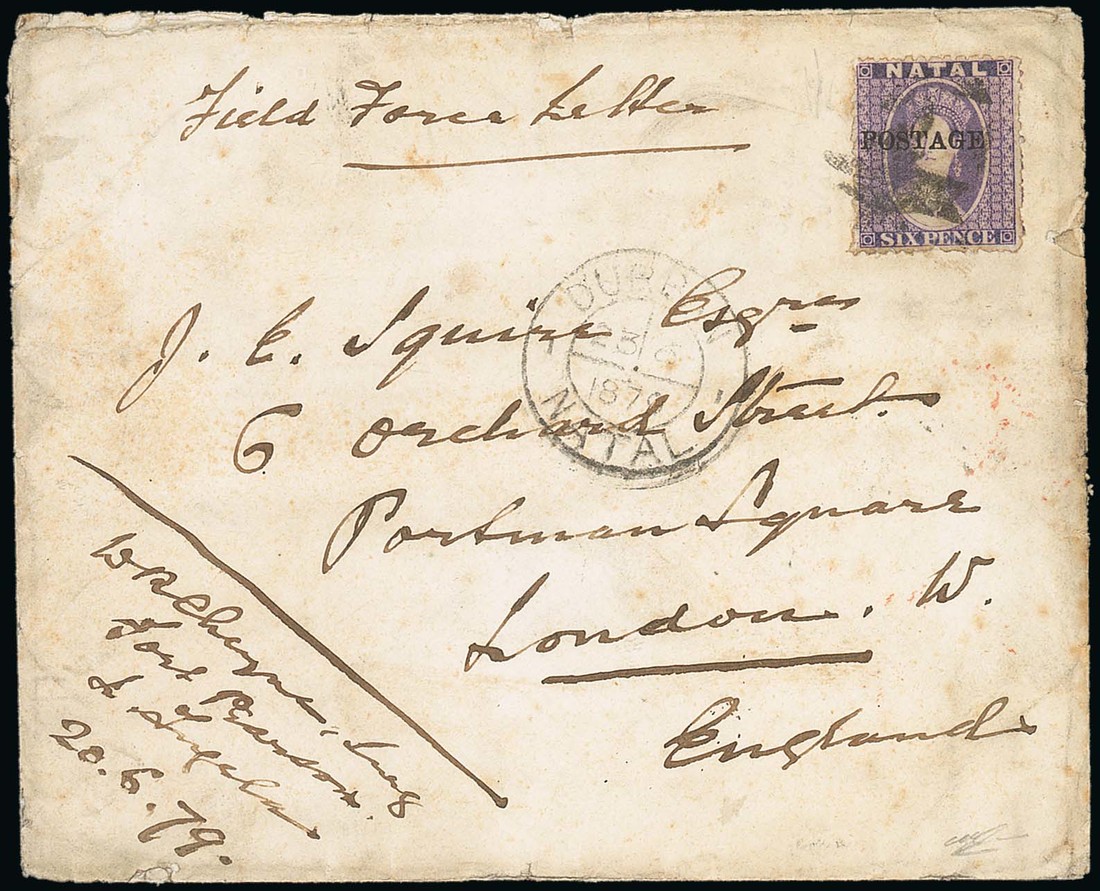 Field Force Letter
NATAL
POSTAGE
SIX PENCE
DURB
23 6
1879
NATAL
J. E. Squire Esqre
6 Orchard Street
Portman Square
London. W.
England
Fort Pearson
20.6.79.